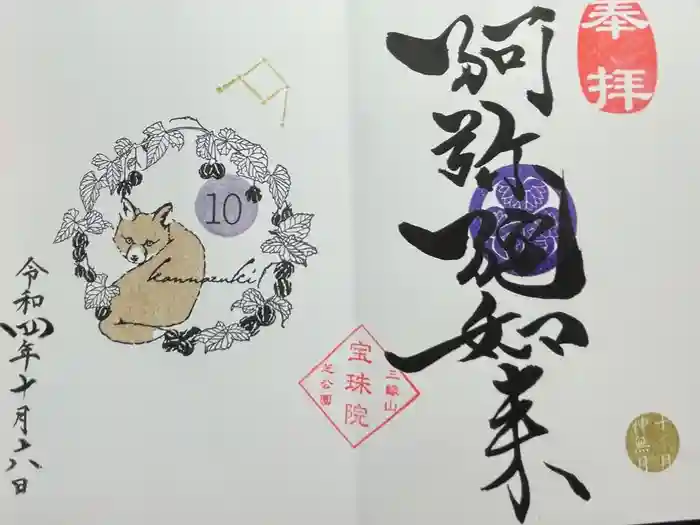 奉拝
阿弥陀如来
十月
神無月
三縁山
宝珠院
芝公園
10
kannazuki
令和四年十月十六日